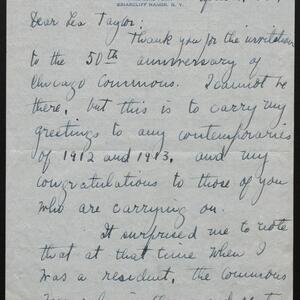 BRIARCLIFF MANOR, N. Y.
Dear Lea Taylor:
Thank you for the invitation
to the 50th anniversary of
Chicago Commons. I cannot be
there, but this is to carry my
greetings to any contemporaries
of 1912 and 1913, and my
congratulations to those of you
who are carrying on.
It surprised me to note
that at that time when I
was a resident, the Commons